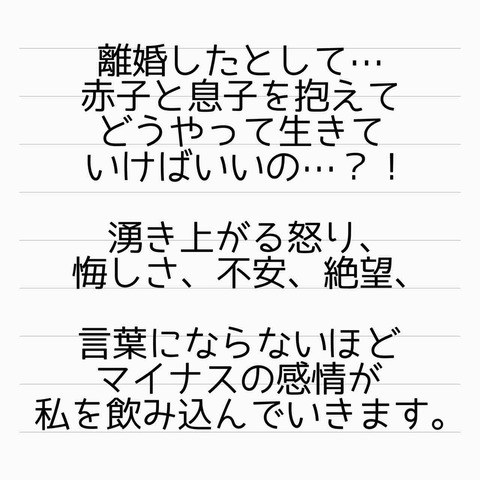 離婚したとして…
赤子と息子を抱えて
どうやって生きて
いけばいいの…？！
湧き上がる怒り、
悔しさ、不安、絶望、
言葉にならないほど
マイナスの感情が
私を飲み込んでいきます。